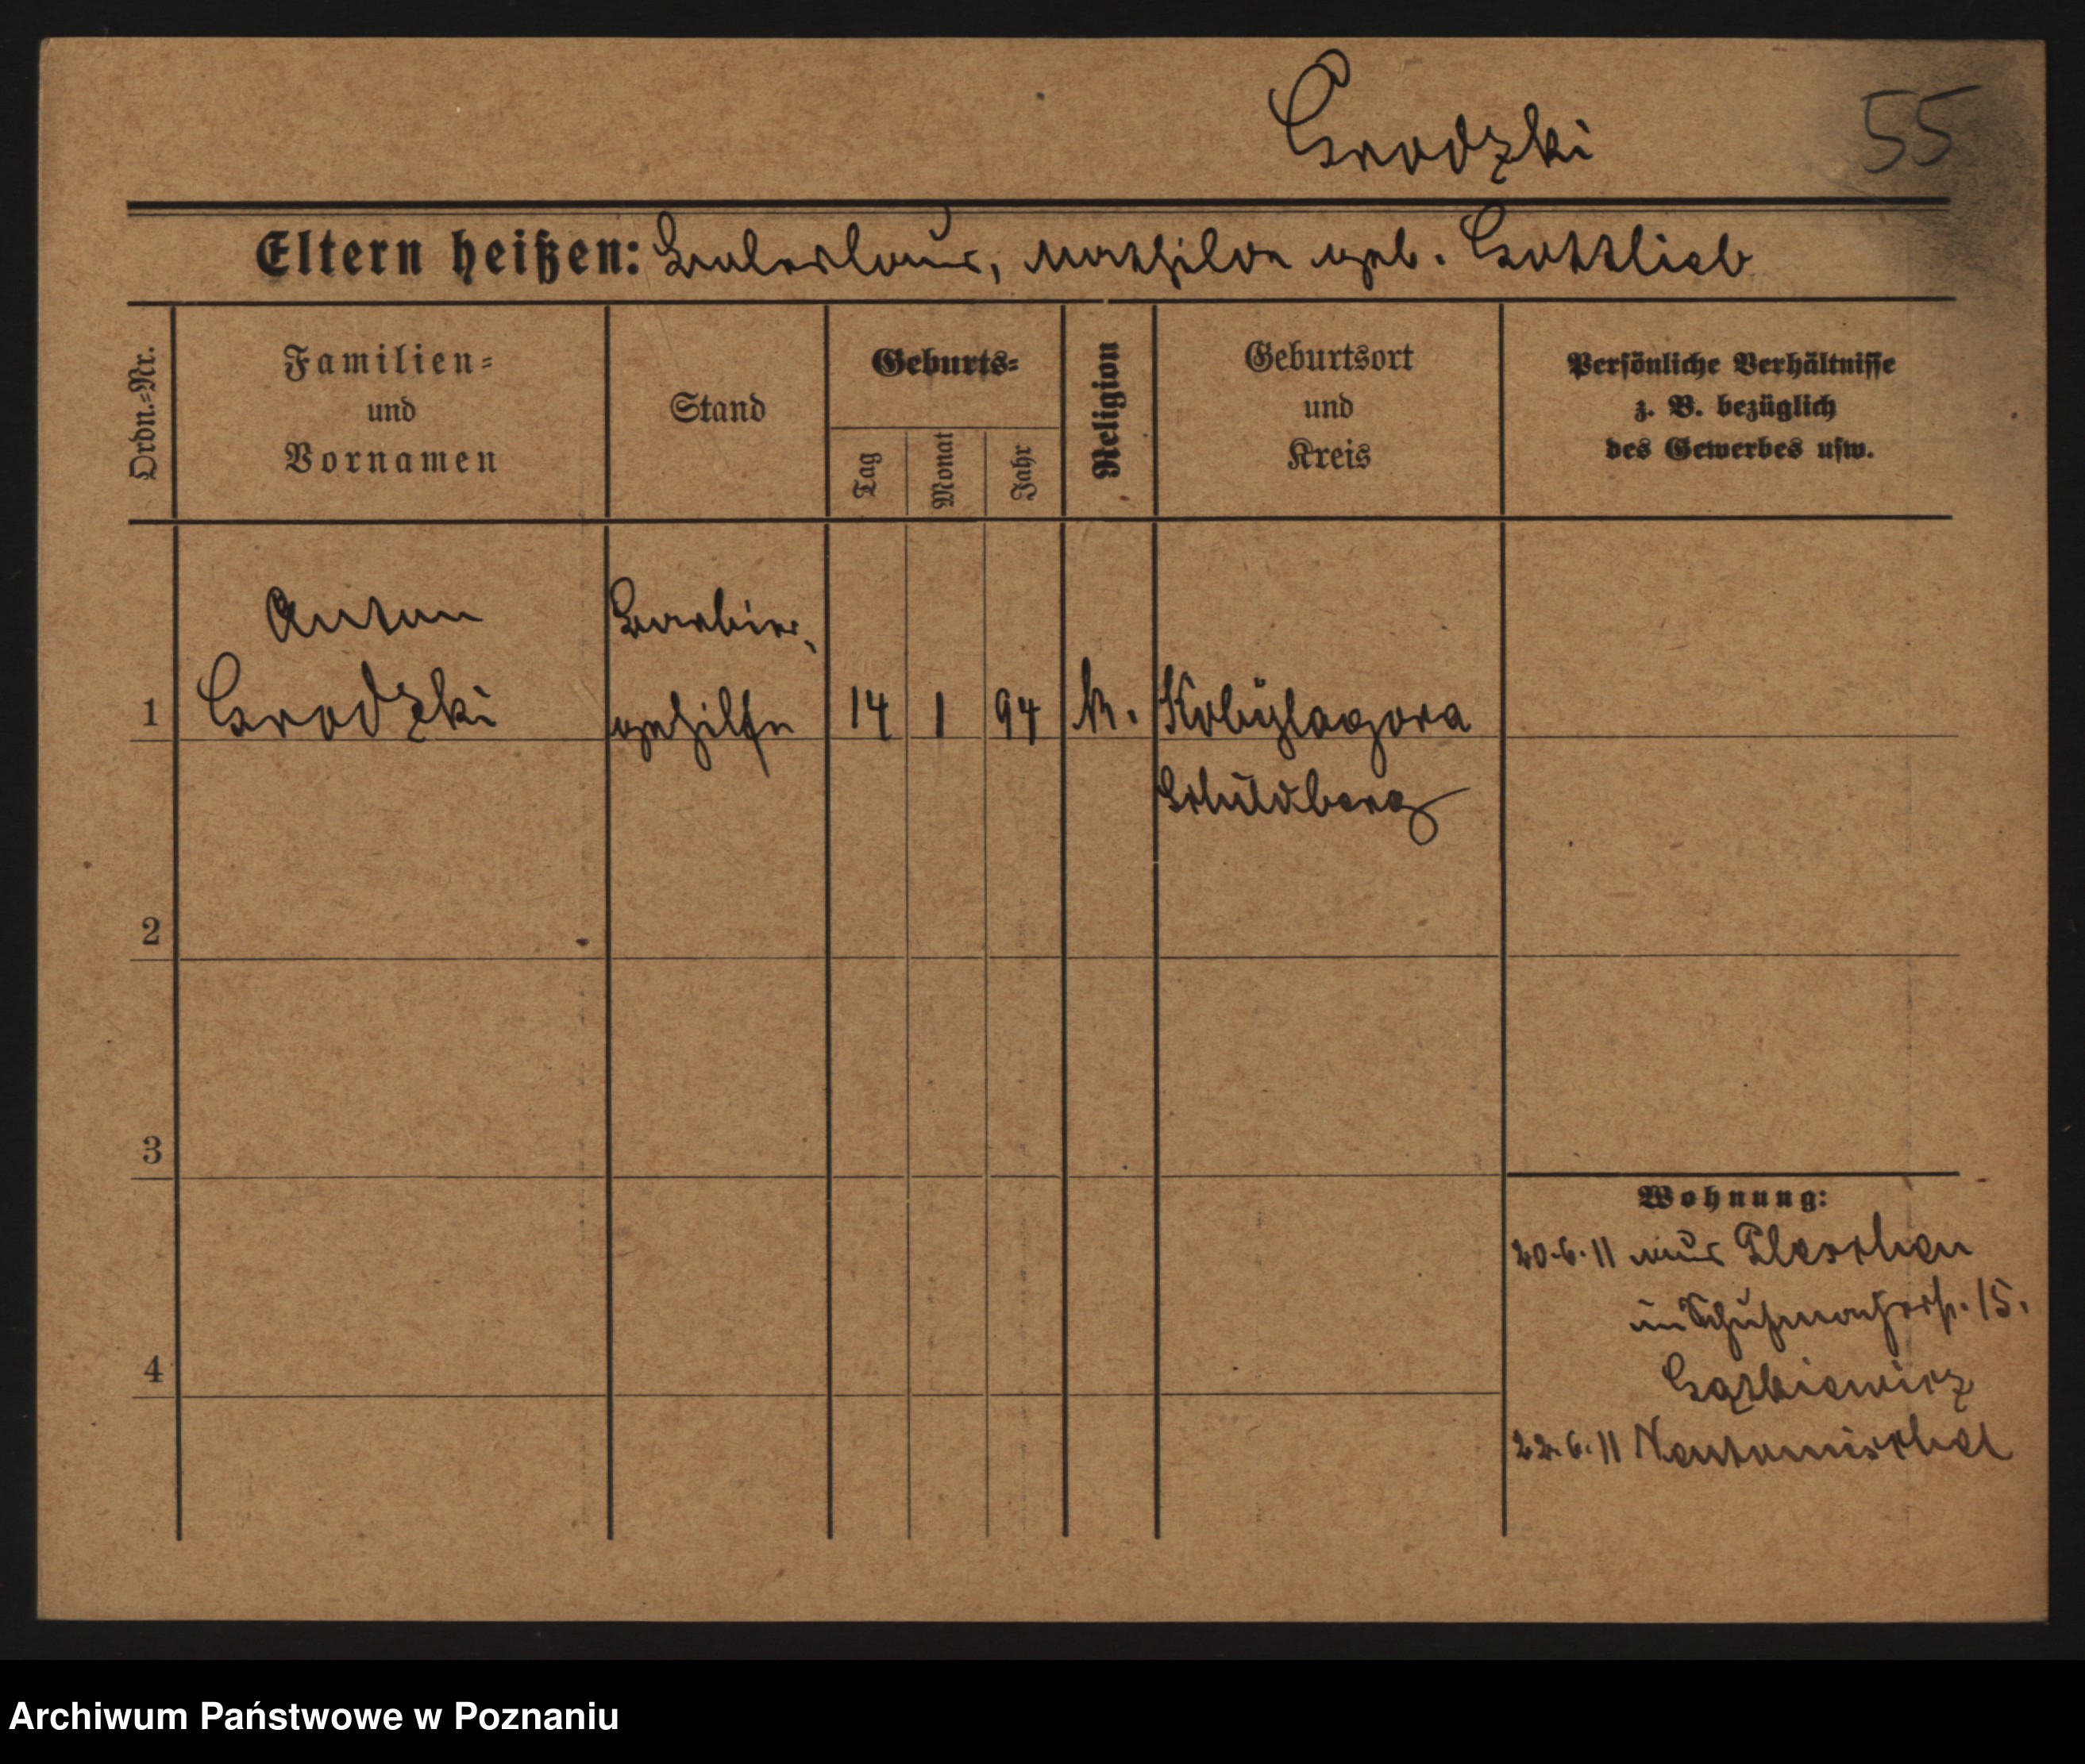 Grodzki 55
Eltern heißen: Boleslaus, Mathilde geb. Gottlieb
Ordn.-Nr.
Familien-
und
Vornamen
Stand
Geburts-
Tag
Monat
Jahr
Religion
Geburtsort
und
Kreis
Persönliche Verhältnisse
z. B. bezüglich
des Gewerbes usw.
Anton Barbier-
1 Grodzki gehilfe 14 1 94 k. Kobylagora
Schildberg
2
3
4
Wohnung:
20.6.11 aus Pleschen
in Schuhmacherstr. 15.
22.6.11 Neutomischel
Archiwum Państwowe w Poznaniu